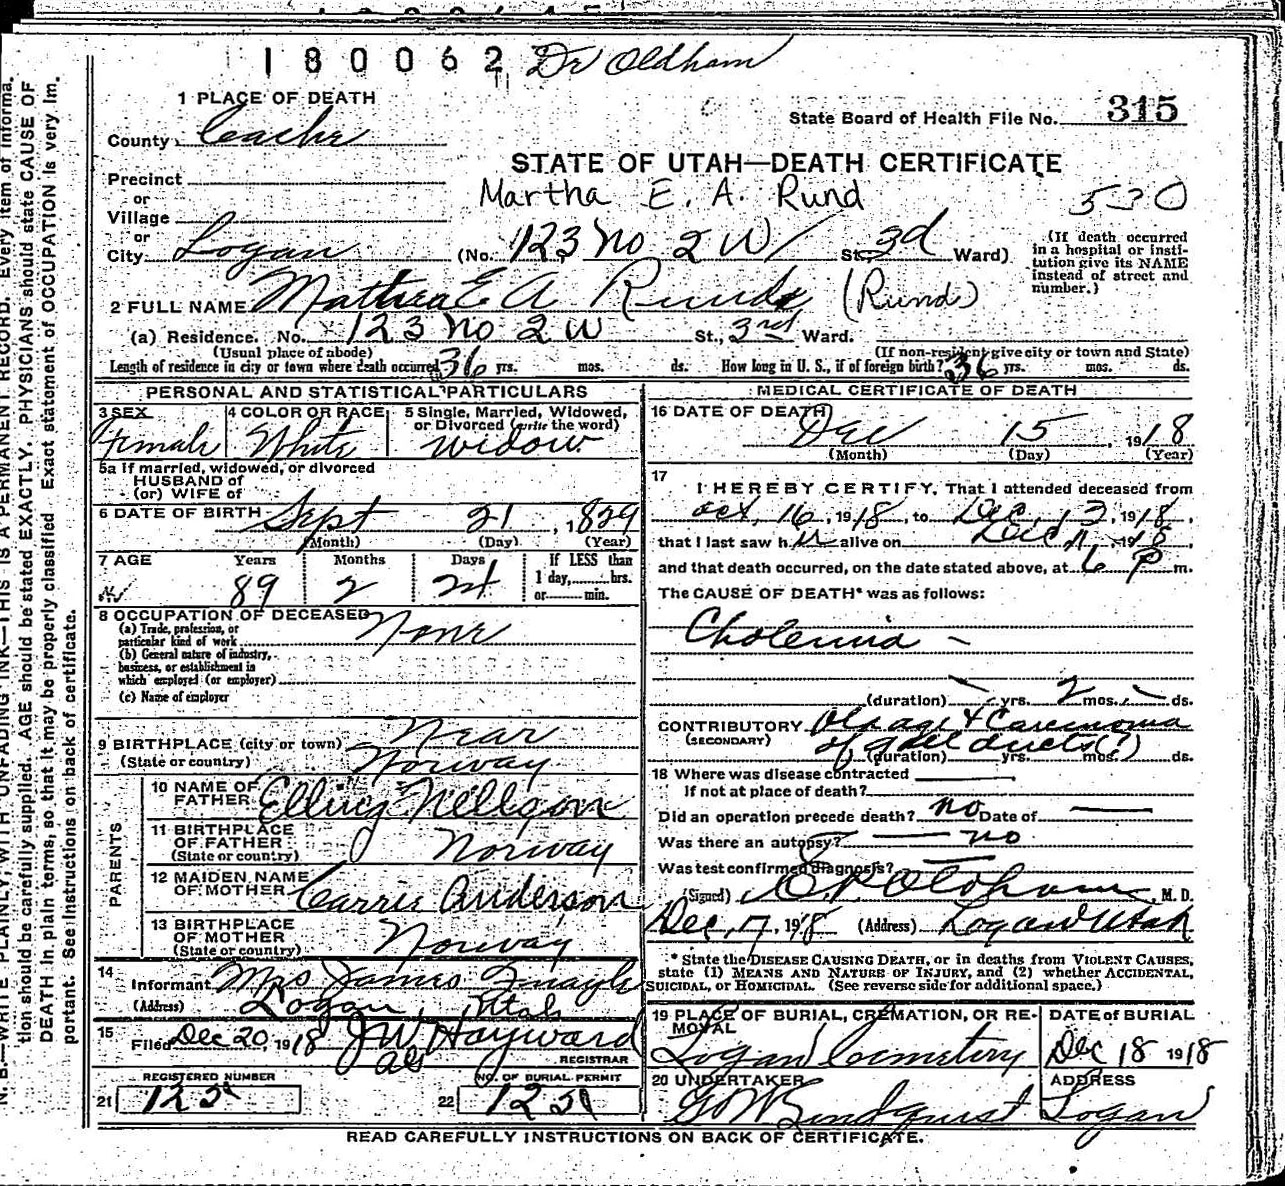 180062 Dr Oldham
1 PLACE OF DEATH
County Cache
State Board of Health File No. 315
STATE OF UTAH—DEATH CERTIFICATE
Precinct
Martha E. A. Rund
530
or
Village
or
City Logan (No. 123 No 2 W St. 3d Ward)
(If death occurred in a hospital or insti-
tution give its NAME
instead of street and
number.)
2 FULL NAME E A (Rund)
(a) Residence. No. 123 No 2 W St., 3rd Ward.
(Usual place of abode) (If non-resident give city or town and State)
Length of residence in city or town where death occurred 36 yrs. mos. ds. How long in U. S., if of foreign birth? 36 yrs. mos. ds.
PERSONAL AND STATISTICAL PARTICULARS
3 SEX Female
4 COLOR OR RACE White
5 Single, Married, Widowed,
or Divorced (write the word)
widow
5a If married, widowed, or divorced
HUSBAND of
(or) WIFE of
6 DATE OF BIRTH Sept 21, 1829
(Month) (Day) (Year)
7 AGE Years Months Days If LESS than
89 2 1 day, hrs.
or min.
8 OCCUPATION OF DECEASED None
(a) Trade, profession, or
particular kind of work
(b) General nature of industry,
business, or establishment in
which employed (or employer)
(c) Name of employer
9 BIRTHPLACE (city or town)
(State or country) Norway
PARENTS
10 NAME OF
FATHER
11 BIRTHPLACE
OF FATHER
(State or country) Norway
12 MAIDEN NAME
OF MOTHER Carrie Anderson
13 BIRTHPLACE
OF MOTHER
(State or country) Norway
14
Informant Mrs James
(Address) Logan, Utah
15
Filed Dec 20, 1918 J W Hayward
REGISTRAR
REGISTERED NUMBER
21
NO. OF BURIAL PERMIT
22
MEDICAL CERTIFICATE OF DEATH
16 DATE OF DEATH
Dec 15, 1918
(Month) (Day) (Year)
17
I HEREBY CERTIFY, That I attended deceased from
Oct, 16, 1918, to Dec, 13, 1918,
that I last saw h er alive on Dec 19
and that death occurred, on the date stated above, at 6 P m.
The CAUSE OF DEATH* was as follows:
Cholemia -
(duration) yrs. 2 mos. ds.
CONTRIBUTORY Old age & Carcinoma
(SECONDARY) of gall ducts(?)
(duration) yrs. mos. ds.
18 Where was disease contracted
If not at place of death?
Did an operation precede death? no Date of
Was there an autopsy? no
Was test confirmed diagnosis?
(Signed) Oldham, M. D.
Dec, 17, 1918 (Address) Logan Utah
* State the DISEASE CAUSING DEATH, or in deaths from VIOLENT CAUSES,
state (1) MEANS AND NATURE OF INJURY, and (2) whether ACCIDENTAL,
SUICIDAL, or HOMICIDAL. (See reverse side for additional space.)
19 PLACE OF BURIAL, CREMATION, OR RE-
MOVAL
Logan Cemetery
DATE of BURIAL
Dec 18 1918
20 UNDERTAKER
ADDRESS
Logan
READ CAREFULLY INSTRUCTIONS ON BACK OF CERTIFICATE.
N. B.—WRITE PLAINLY, WITH UNFADING INK—THIS IS A PERMANENT RECORD. Every item of informa-
tion should be carefully supplied. AGE should be stated EXACTLY. PHYSICIANS should state CAUSE OF
DEATH in plain terms, so that it may be properly classified. Exact statement of OCCUPATION is very im-
portant. See instructions on back of certificate.